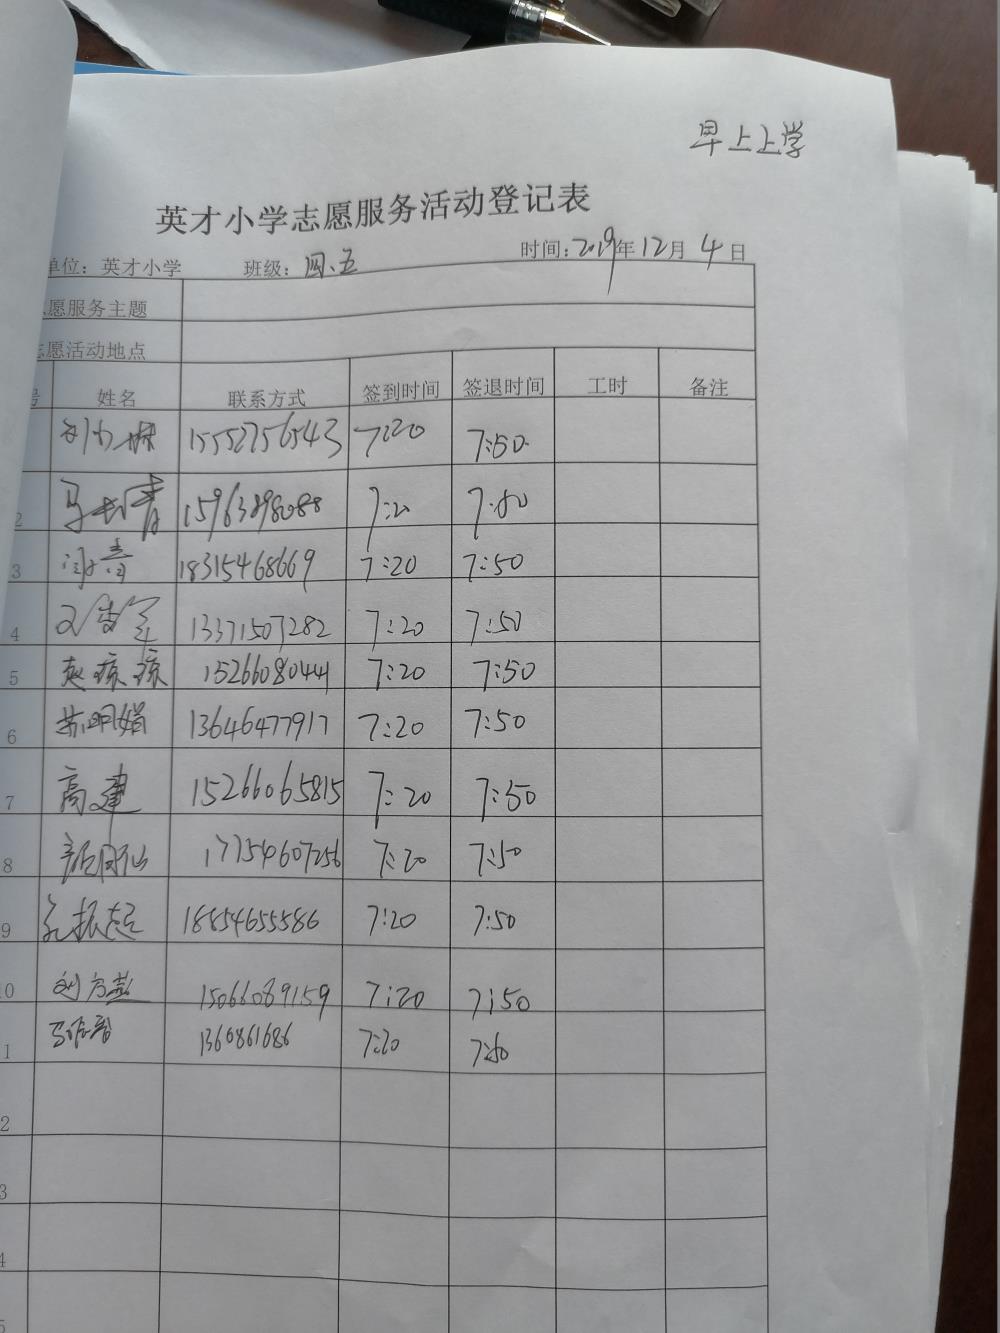 早上上学
英才小学志愿服务活动登记表
单位：英才小学 班级：四、五 时间：2019年12月4日
志愿服务主题
志愿活动地点
号 姓名 联系方式 签到时间 签退时间 工时 备注
15552756543 7:20 7:50
2 15963898088 7:20 7:50
3 闫青 18315468669 7:20 7:50
4 13371507282 7:20 7:50
5 赵琼琼 15266080441 7:20 7:50
6 苏明娟 13646477917 7:20 7:50
7 高建 15266065815 7:20 7:50
8 17754607256 7:20 7:50
9 18854655586 7:20 7:50
10 刘方 15066089159 7:20 7:50
1 1360861686 7:20 7:50
2
3
4
5